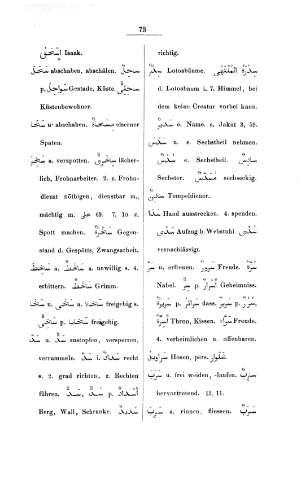 73
إِسْحَقُ Isaak.
سَحَلَ abschaben, abschälen. سَاحِلٌ
p. سَوَاحِلُ Gestade, Küste. سَاحِلِىٌّ
Küstenbewohner.
سَحَا u abschaben. مِسْحَاةٌ eiserner
Spaten.
سَخِرَ a. verspotten. سُخْرِىٌّ lächer-
lich, Frohnarbeiter. 2. z. Frohn-
dienst nöthigen, dienstbar m.,
mächtig m. على 69. 7. 10 c.
Spott machen. سُخْرَةٌ Gegen-
stand d. Gespötts, Zwangsarbeit.
سَخِطَ a. unwillig s. 4.
erbittern. سَخَطٌ Grimm.
freigebig s.
p. freigebig.
سَدَّ u. zustopfen, versperren,
verrammeln. سَدَّ i. سَدَادٌ recht
s. 2. grad richten, z. Rechten
führen. سَدٌّ p. أَسْدَادٌ
Berg, Wall, Schranke. سَدِيدٌ
richtig.
سِدْرٌ Lotosbäume. سِدْرَةُ المُنْتَهَى
d. Lotosbaum i. 7. Himmel, bei
dem keine Creatur vorbei kann.
e. Name. s. Jakut 3, 58.
سَدَسَ u. z. Sechstheil nehmen.
سُدْسٌ e. Sechstheil. سَادِسٌ
Sechster. مُسَدَّسٌ sechseckig.
Tempeldiener.
سَدَا Hand ausstrecken. 4. spenden.
سَدًى Aufzug b. Webstuhl
vernachlässigt.
سَرَّ u. erfreuen. سُرُورٌ Freude.
Nabel. سِرٌّ p. Geheimniss.
dass. سَرِيرٌ p.
Thron, Kissen. Freude.
4. verheimlichen u. offenbaren.
سِرْوَالٌ Hosen, pers. شلوار
سَرَبَ u. frei weiden, -laufen.
hervortretend. 13, 11.
سَرِبَ a. rinnen, fliessen.